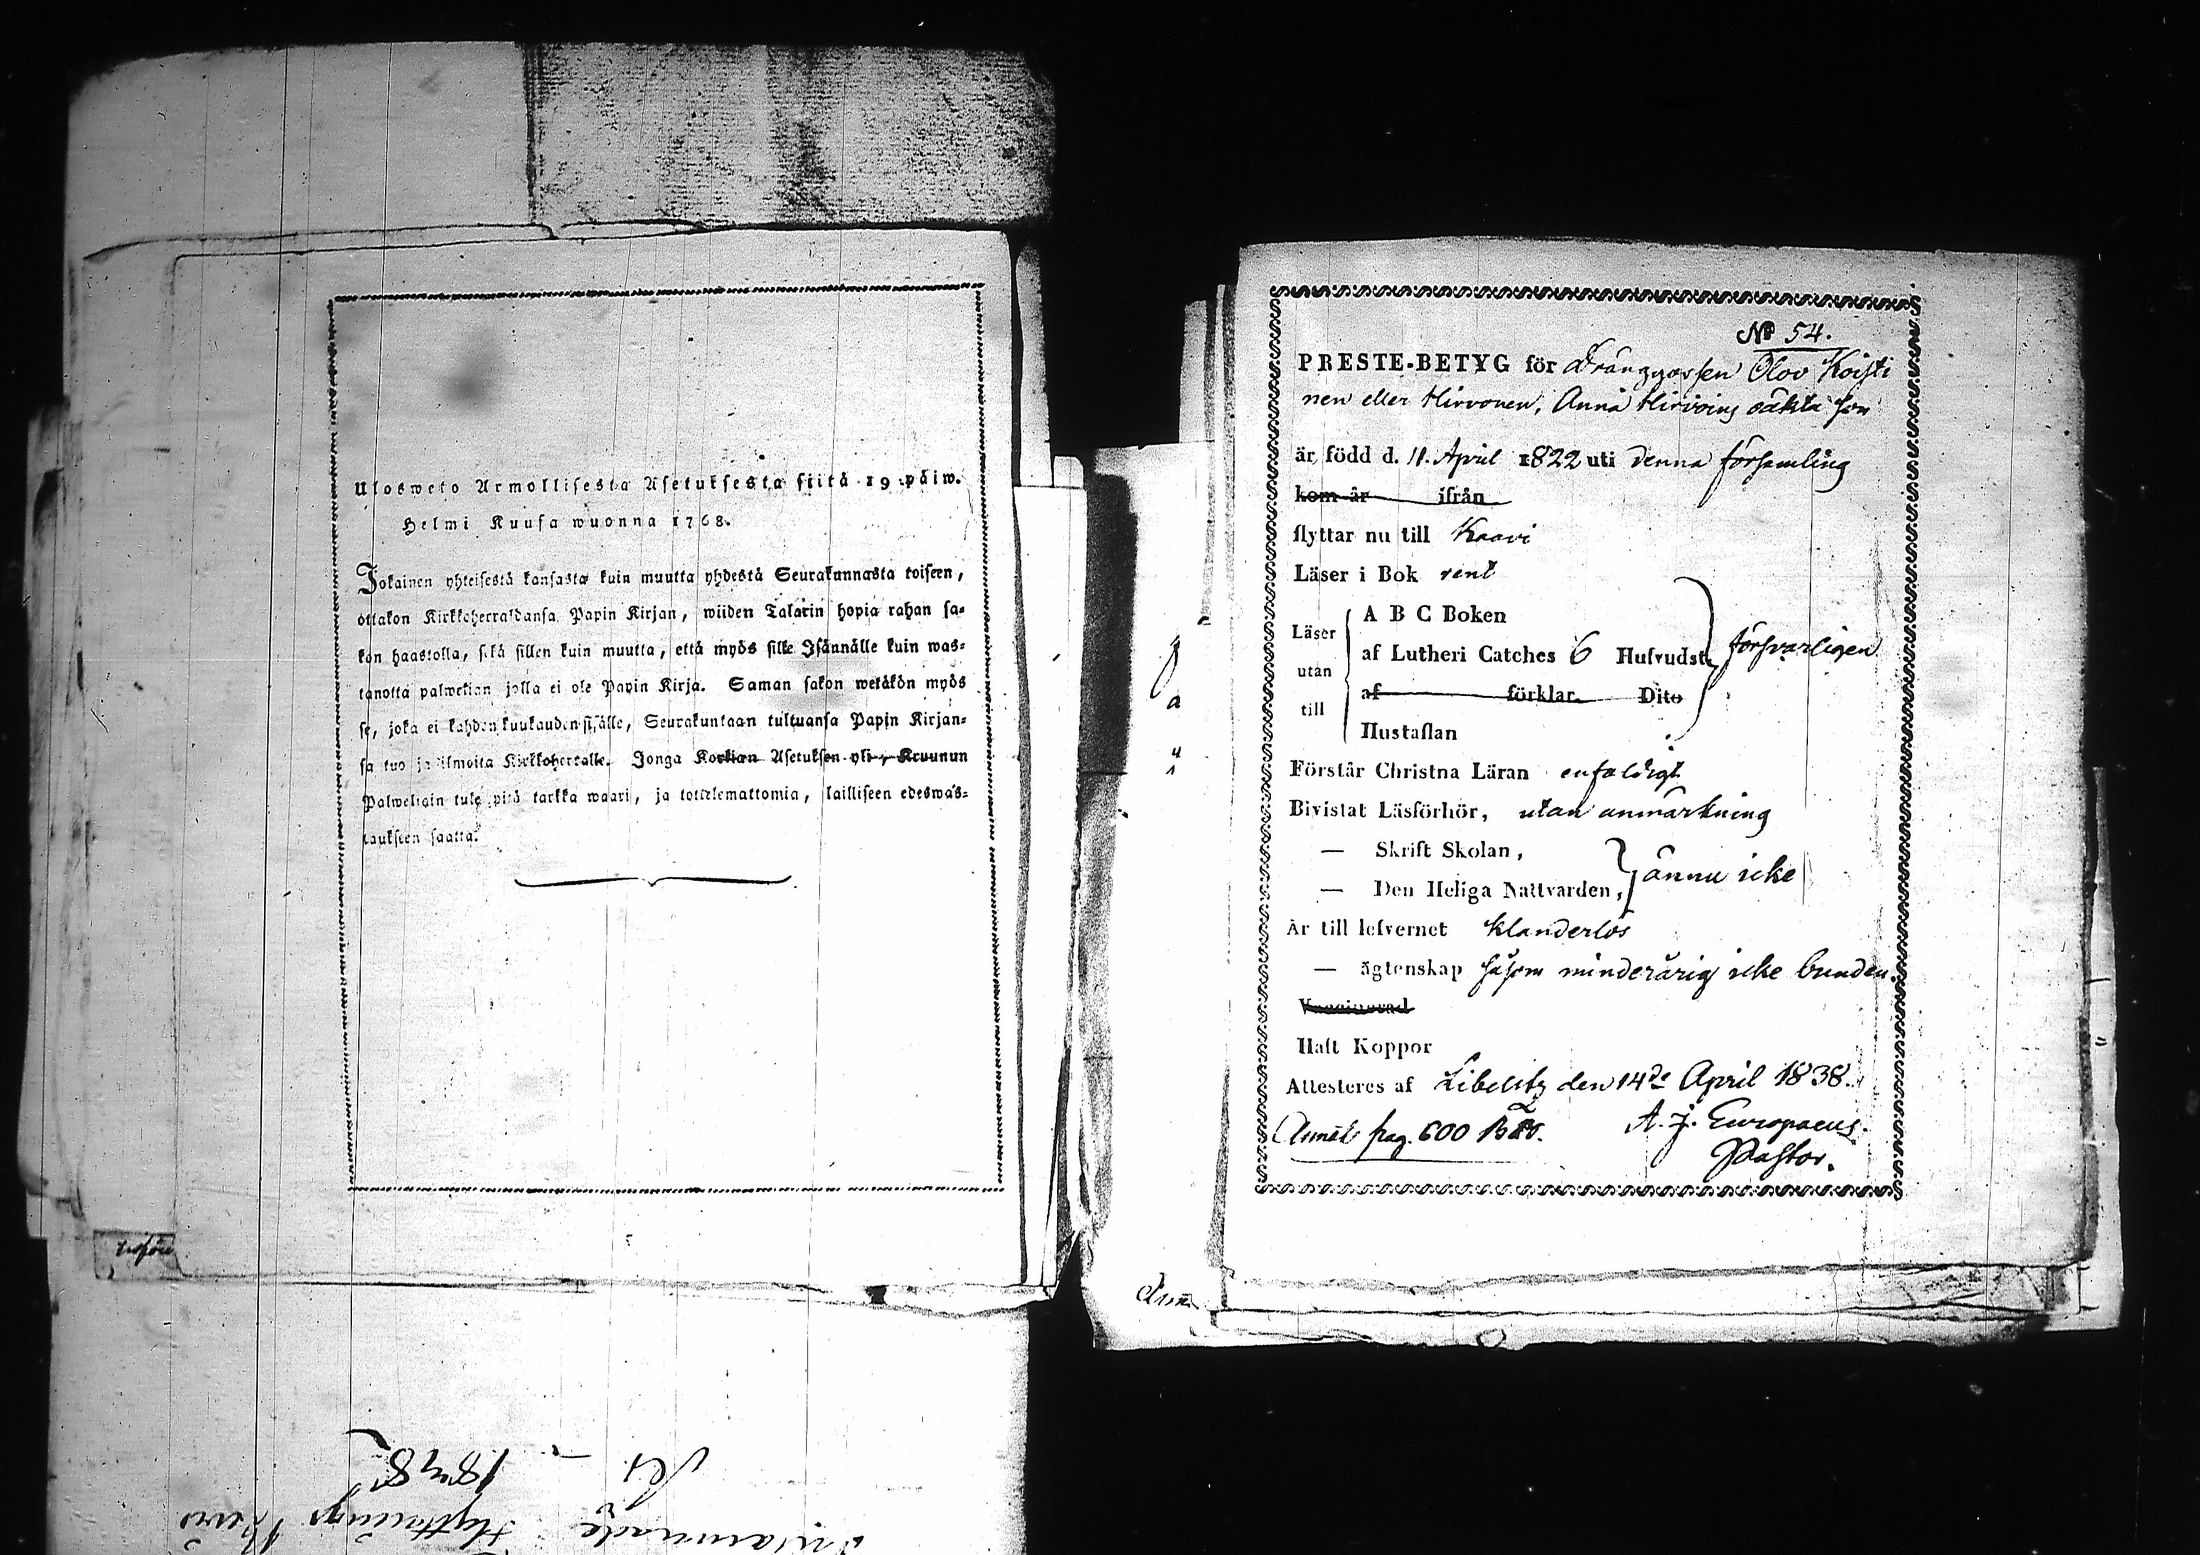 Ulosweto Armollisesta Asetuksesta siitä 19 päiw.
Helmi Kuusa wuonna 1768.
Jokainen yhteisestä kansasta kuin muutta yhdestä Seurakunnasta toiseen,
ottakon Kirkkoherraldansa Papin Kirjan, wiiden Talarin hopia rahan sa-
kon haastolla, sekä sillen kuin muutta, että myös sille Isännälle kuin was-
tanotta palwelian jolla ei ole Papin Kirja. Saman sakon wetäkön myös
se, joka ei kahden kuukauden sisälle, Seurakuntaan tultuansa Papin Kirjan-
sa tuo ja ilmoita Kirkkoherralle. Jonga Korkian Asetuksen yli, Kruunun
Palweliain tule pitä tarkka waari, ja tottelemattomia, lailliseen edeswas-
taukseen saatta.
1838
Flyttnings
No 54.
PRESTE-BETYG för Drånggossen Olov Koisti
nen eller Hirvonen, Anna Hirvoins oäkta son
är född d. 11. April 1822 uti denna församling
kom år ifrån
flyttar nu till Kaavi
Läser i Bok rent
Läser utan till
A B C Boken
af Lutheri Catches 6 Hufvudst. försvarligen
af förklar. Dito
Hustaflan
Förstår Christna Läran enfaldigt
Bivistat Läsförhör, utan anmärkning
— Skrift Skolan,
— Den Heliga Nattvarden, ännu icke
Är till lefvernet klanderlös
— ägtenskap såsom minderårig icke bunden.
Vaccinerad
Haft Koppor
Attesteres af Libelitz den 14de April 1838.
A. J. Europaeus.
Pastor.
pag. 600